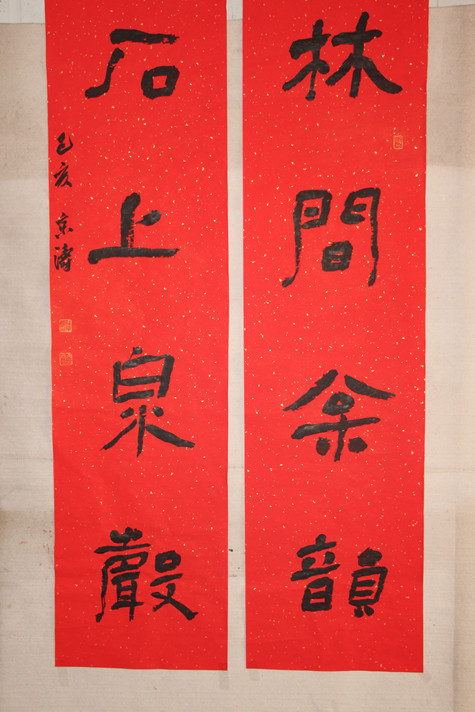 林間余韻
石上泉聲
己亥 京濤